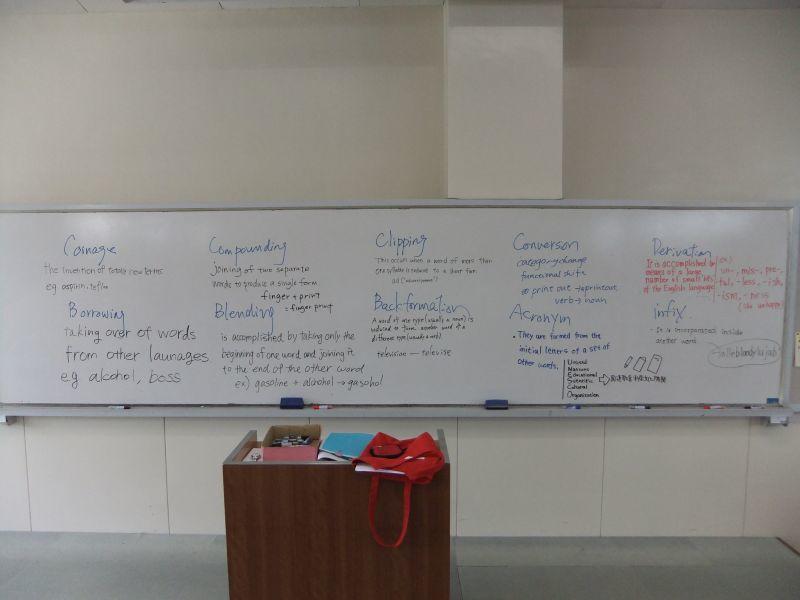 Coinage
the invention of totally new terms
eg. aspirin, teflon
Borrowing
taking over of words
from other launages
e.g alcohol, boss
Compounding
joining of two separate
words to produce a single form
finger + print
= finger print
Blending
is accomplished by taking only the
beginning of one word and joining it
to the end of the other word
ex) gasoline + alcohol → gasohol
Clipping
This occurs when a word of more than
one syllable is reduced to a short form
Backformation
A word of one type (usually a noun) is
reduced to form another word of a
different type (usually a verb)
television — televise
Conversion
category change
functional shift
to print out → a printout
verb → noun
Acronym
• They are formed from the
initial letters of a set of
other words.
United
Nations
Educational
Scientific
Cultural
Organization
Derivation
It is accomplished by
means of a large
number of small bits
of the English language
ex)
un-, mis-, pre-,
-ful, -less, -ish,
-ism, -ness
(like unhappy)
infix
- It is incorporated inside
another word